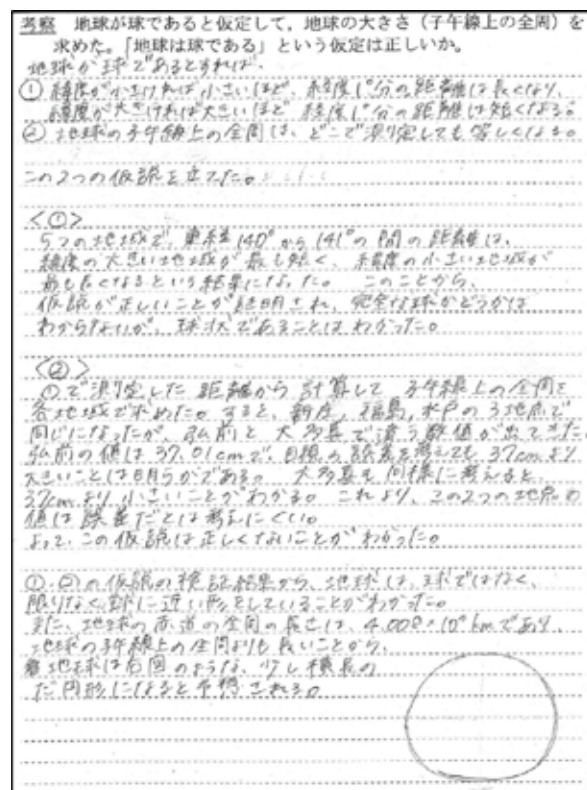 考察 地球が球であると仮定して，地球の大きさ（子午線上の全周）を
求めた。「地球は球である」という仮定は正しいか。
地球が球であるとすれば、
① 緯度が小さければ小さいほど、経度1°分の距離は長くなり、
緯度が大きければ大きいほど 経度1°分の距離は短くなる。
② 地球の子午線上の全周は、どこで測定しても等しくなる。
この2つの仮説を立てた。
<①>
5つの地域で、東経140°から141°の間の距離は、
緯度の大きい地域が最も短く、緯度の小さい地域が
最も長くなるという結果になった。 このことから、
仮説が正しいことが証明され、完全な球かどうかは
わからないが、球状であることはわかった。
<②>
①で測定した距離から計算して 子午線上の全周を
各地域で求めた。すると、新庄, 福島, 水戸の3地点で
同じになったが、弘前と大多喜で違う数値が出てきた。
弘前の値は37.01cmで、目視の誤差を考えても、37cmより
大きいことは明らかである。 大多喜も同様に考えると、
37cmより小さいことがわかる。 これより、この2つの地点の
値は誤差だとは考えにくい。
よって、この仮説は正しくないことがわかった。
①・②の仮説の検証結果から、地球は、球ではなく、
限りなく球に近い形をしていることがわかった。
また、地球の赤道の全周の長さは、4.008×10⁴kmであり、
地球の子午線上の全周よりも長いことから、
地球は右図のような、少し横長の
だ円形になると予想される。